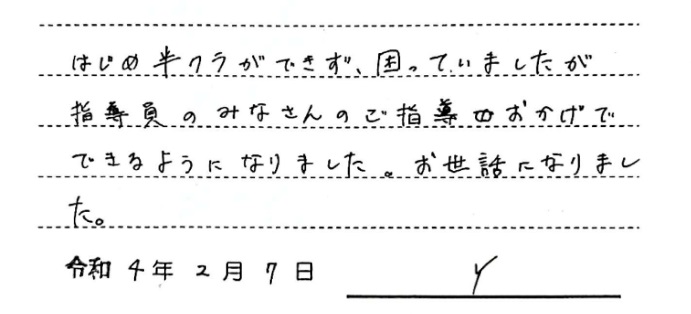 はじめ半クラができず、困っていましたが
指導員のみなさんのご指導のおかげで
できるようになりました。お世話になりまし
た。
令和4年2月7日 Y